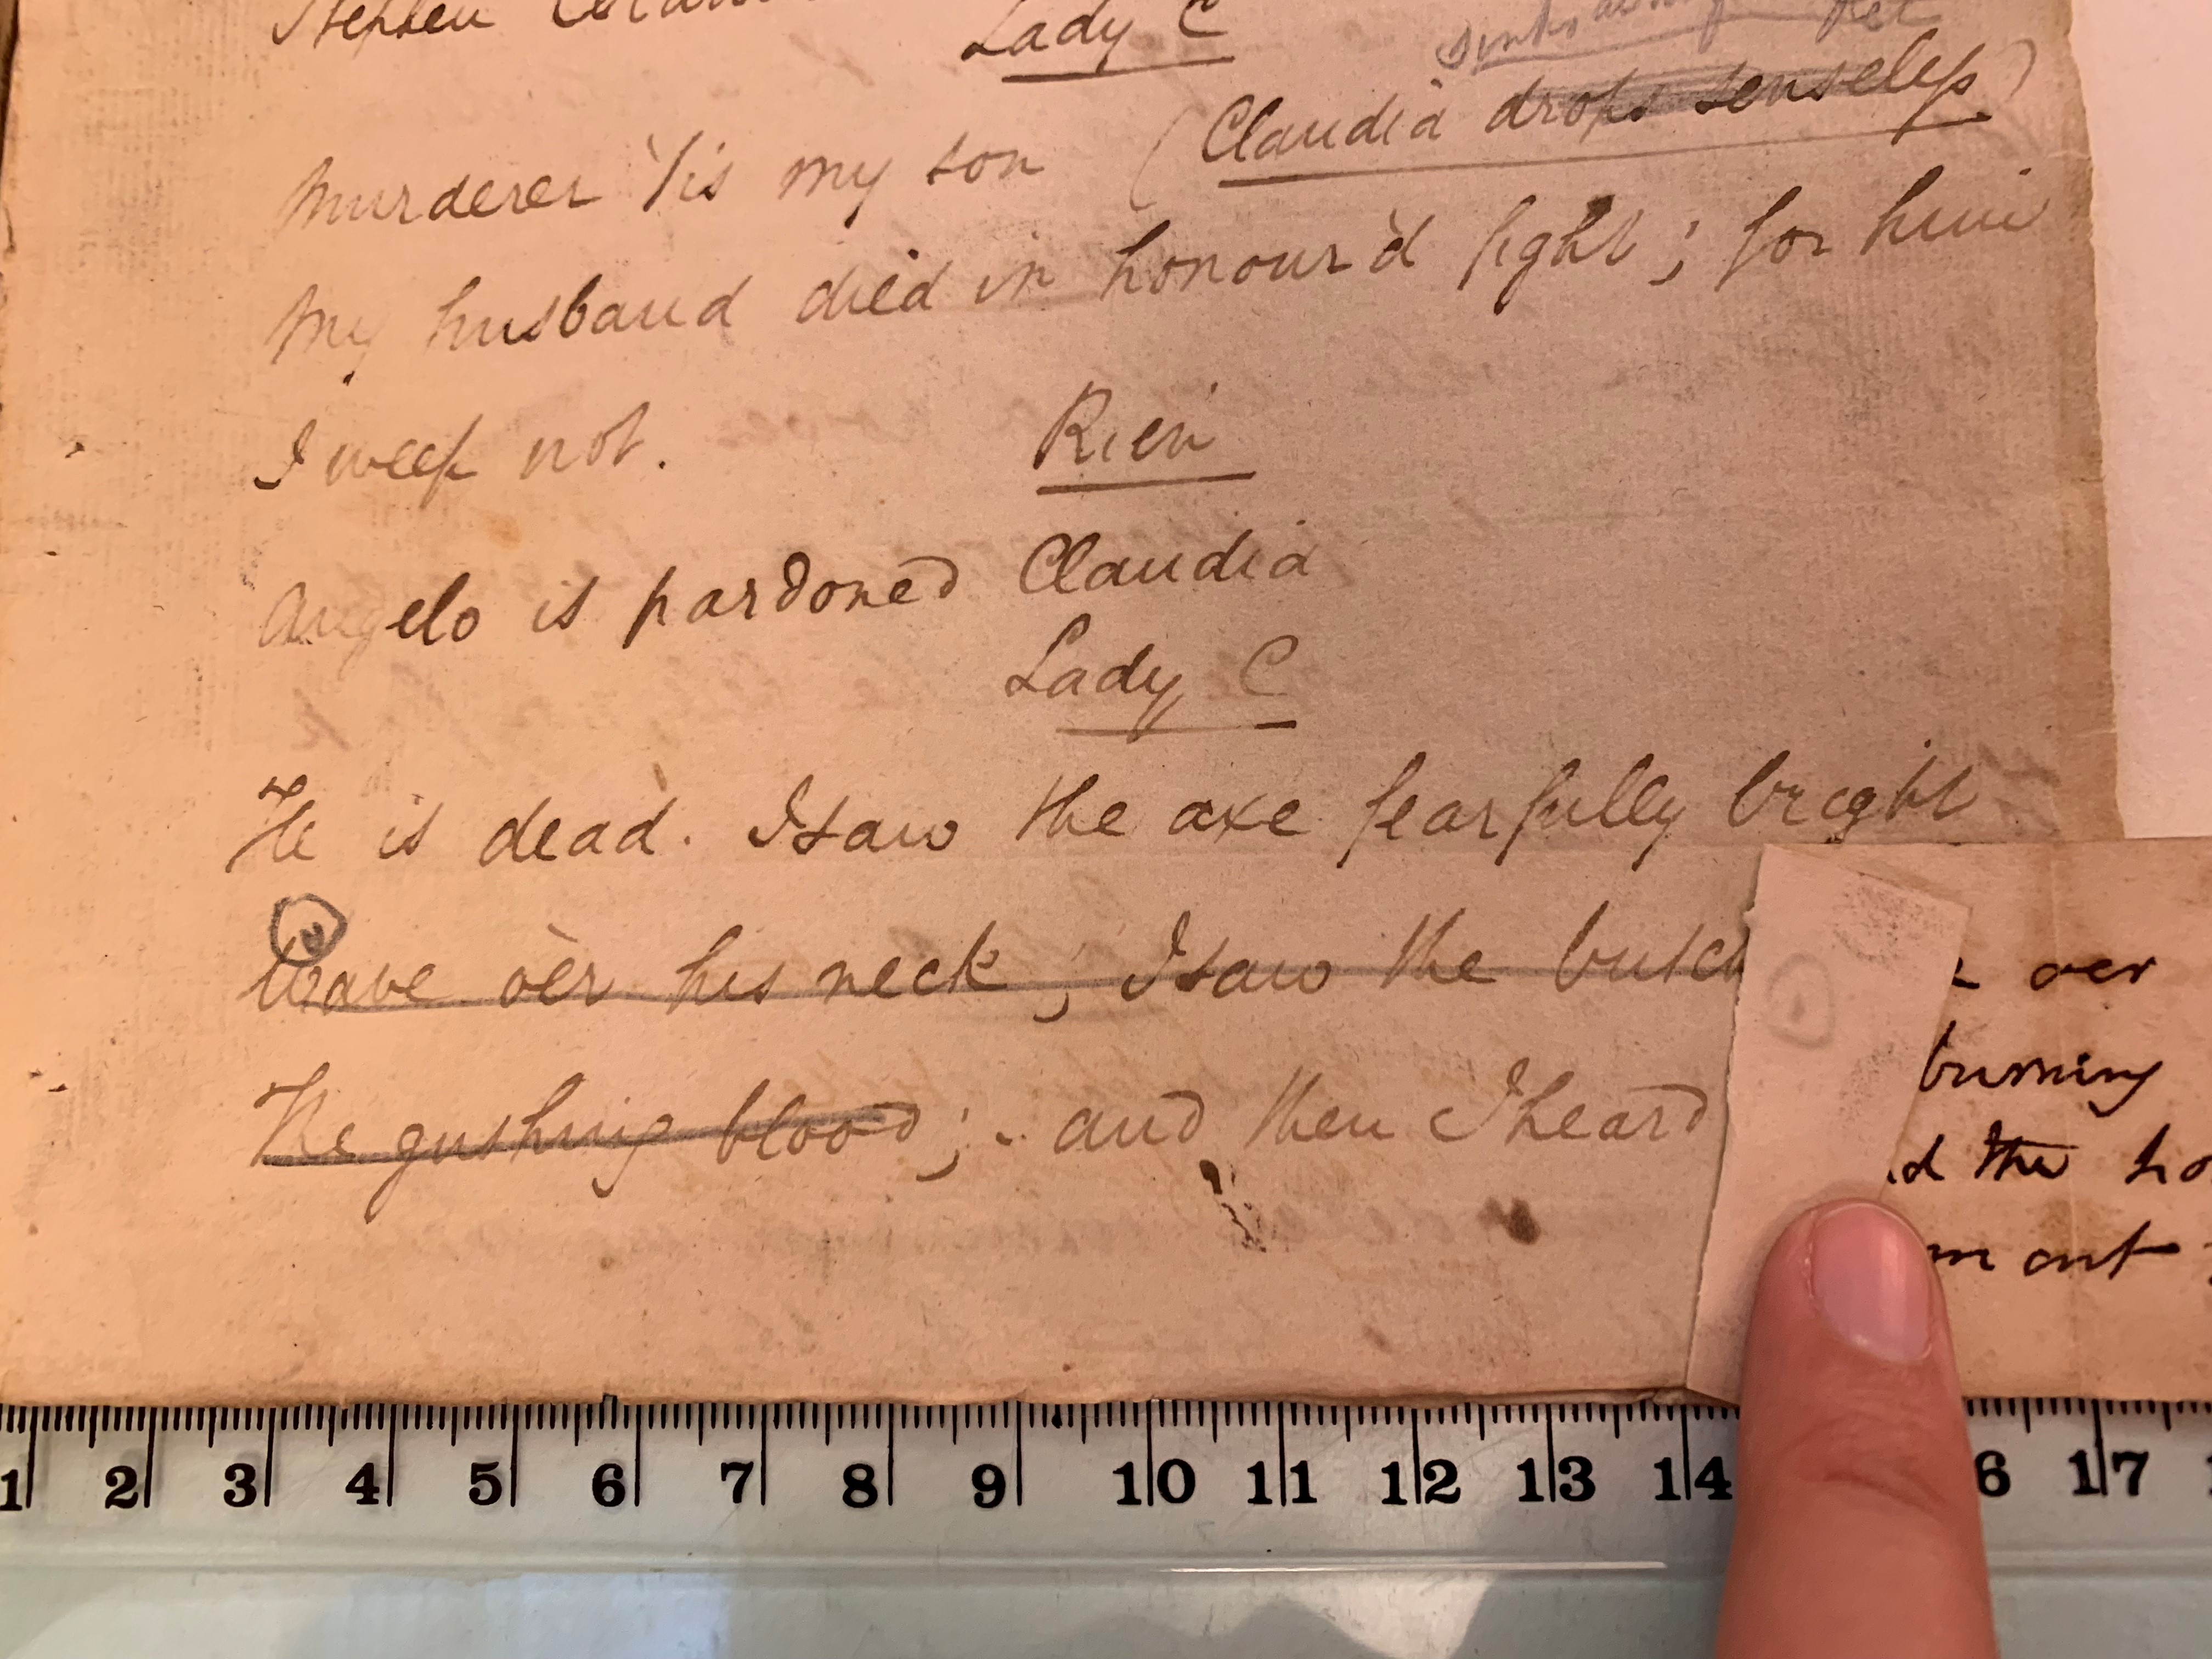 Stephen
Lady C
sinks
Murderer 'tis my son (Claudia drops senseless)
My husband died in honour'd fight; for him
I weep not.
Rien
Angelo is pardoned Claudia
Lady C
He is dead. I saw the axe fearfully bright
Wave o'er his neck; I saw the butch
The gushing blood; - and then I heard
oer
burning
d the ho
m out
1 2 3 4 5 6 7 8 9 10 11 12 13 14 6 17